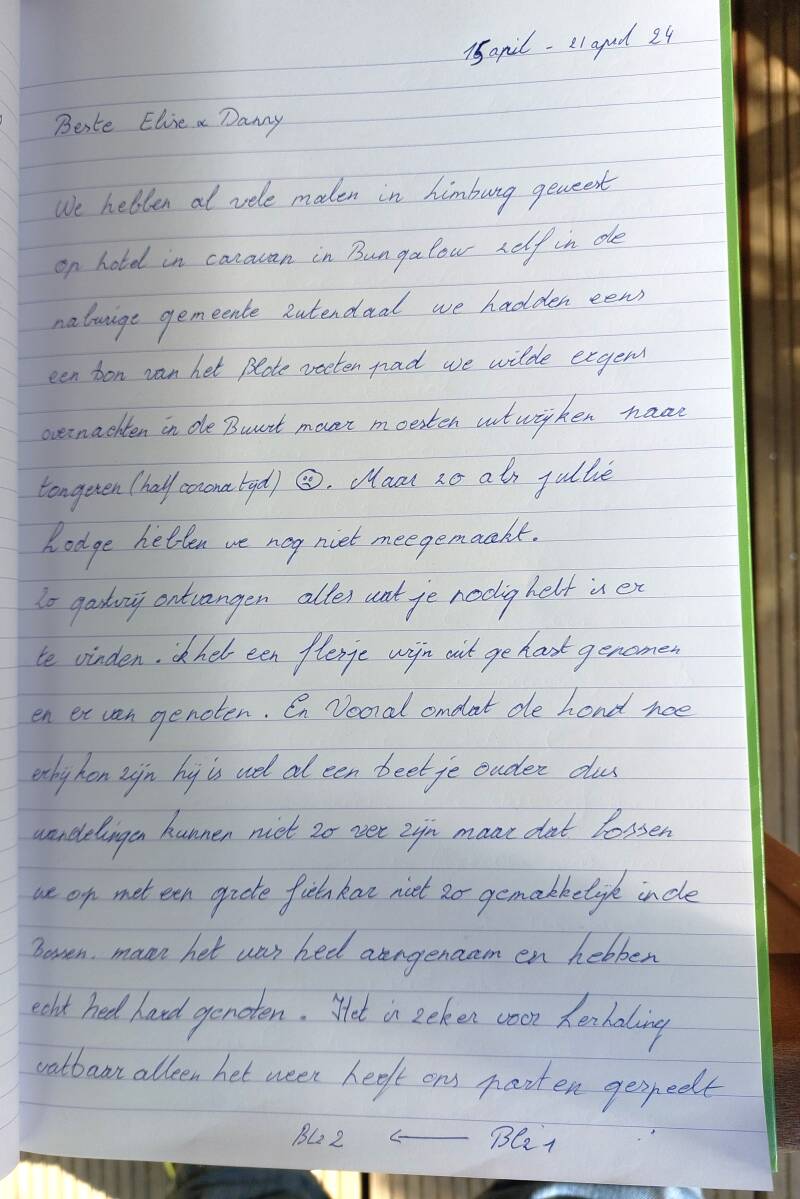 15 april - 21 april 24
Beste Elise & Danny
We hebben al vele malen in Limburg geweest
op hotel in caravan in Bungalow zelf in de
naburige gemeente Zutendaal we hadden eens
een bon van het Blote voeten pad we wilde ergens
overnachten in de Buurt maar moesten uitwijken naar
tongeren (half corona tijd) ☹. Maar zo als jullie
Lodge hebben we nog niet meegemaakt.
Zo gastvrij ontvangen alles wat je nodig hebt is er
te vinden. ik heb een flesje wijn uit ge kast genomen
en er van genoten. En Vooral omdat de hond
erbij kon zijn hij is wel al een beetje ouder dus
wandelingen kunnen niet zo ver zijn maar dat lossen
we op met een grote fietskar niet zo gemakkelijk in de
Bossen. maar het was heel aangenaam en hebben
echt heel hard genoten. Het is zeker voor herhaling
vatbaar alleen het weer heeft ons parten gespeelt
Blz 2 ← Blz 1